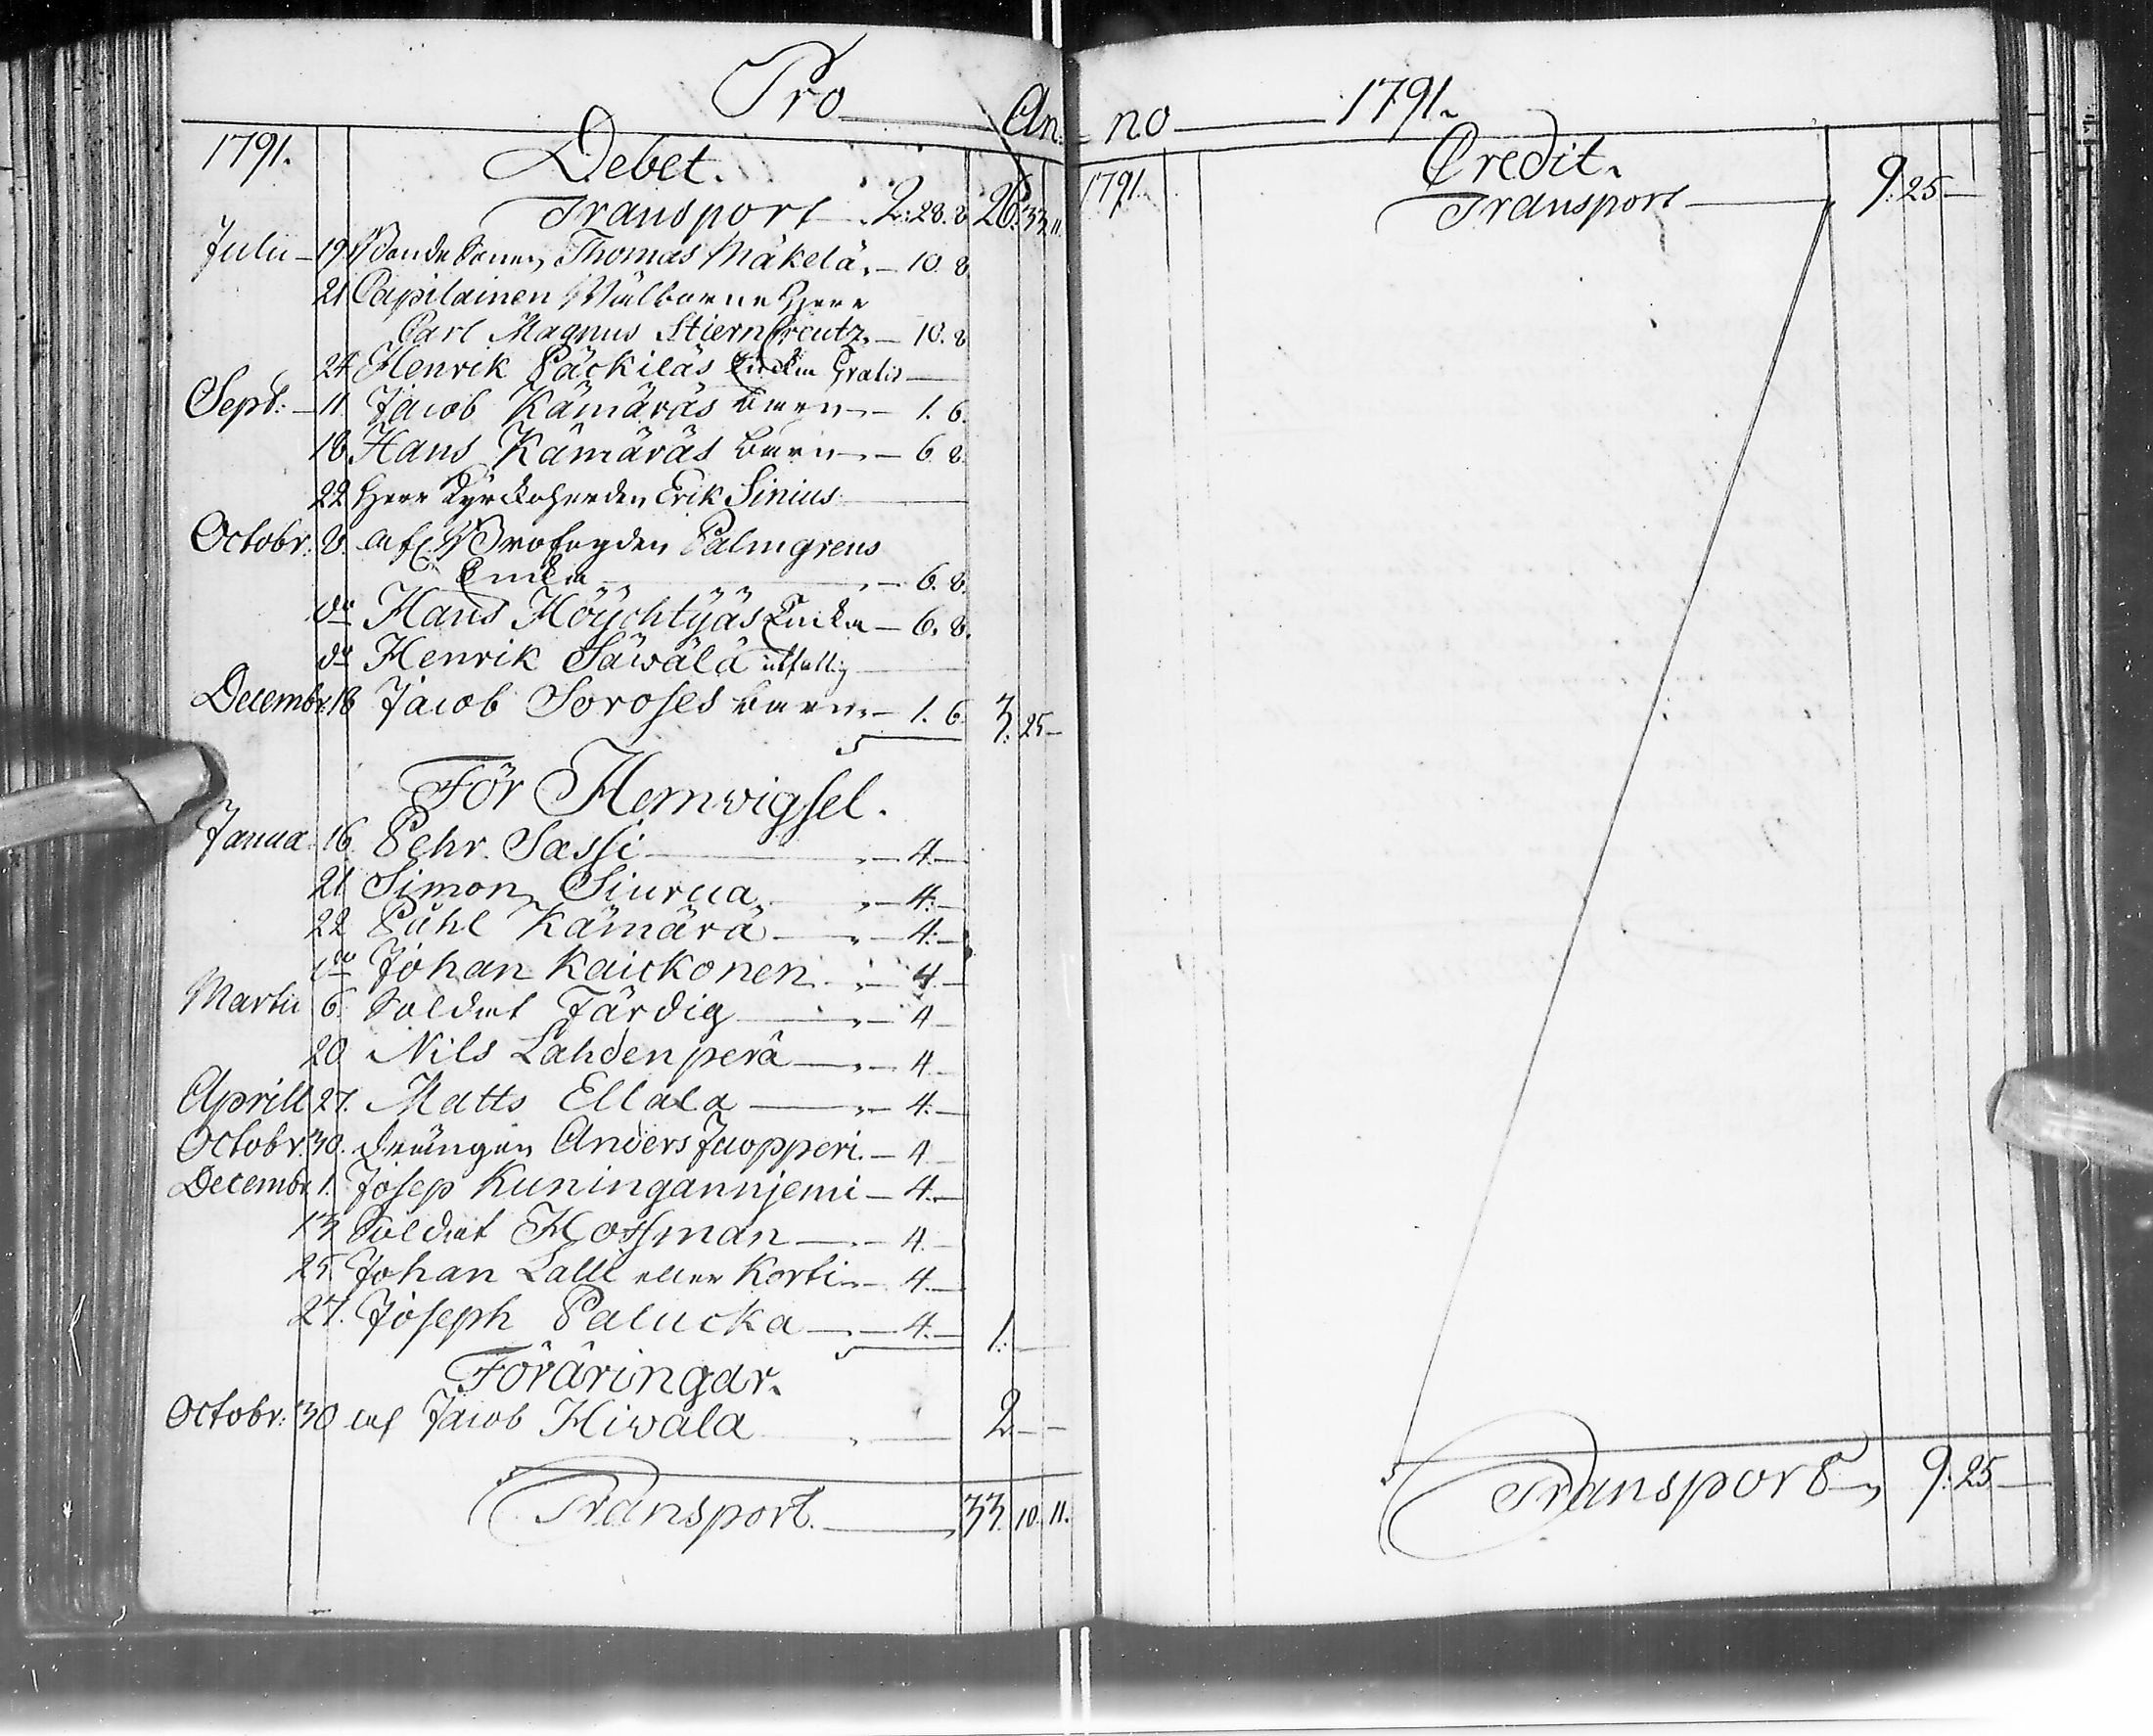 Pro An-
1791.
Debet.
Transport 2: 28. 8 26: 33. 11.
Julii 19 Bonde Sonen Thomas Mäkelä 10. 8
21 Capitainen Wälborne Herr
Carl Magnus Stierncreutz 10. 8
24 Henrik Päckiläs Enckia Gratis
Sept: 11 Jacob Kämäräs barn 1. 6.
18 Hans Kämäräs barn 6. 8.
22 Herr Kyrckoherden Erik Sinius
Octobr. 8. afl. Brofogden Palmgrens
Enckia 6. 8.
do Hans Höychtyäs Enckia 6. 8.
do Henrik Säwälä utfattig
Decembr. 18 Jacob Soroses barn 1. 6. 3: 25
För Hemwigsel.
Janua. 16. Pehr Sassi 4.
21 Simon Siurua 4.
22 Påhl Kämärä 4.
do Johan Kaickonen 4
Martii 6. Soldat Färdig 4
20 Nils Lahdenperä 4
Aprill 27. Matts Ellala 4.
Octobr. 30. drängen Anders Juopperi 4
Decembr 1. Josep Kuningannjemi 4.
13 Soldat Hoffman 4.
25. Johan Lalli eller Korti 4.
27. Joseph Palucka 4. 1:
Föräringar.
Octobr: 30 af Jacob Hiwala 2
Transport 33. 10. 11.
no 1791.
1791.
Credit.
Transport 9: 25
Transport 9: 25